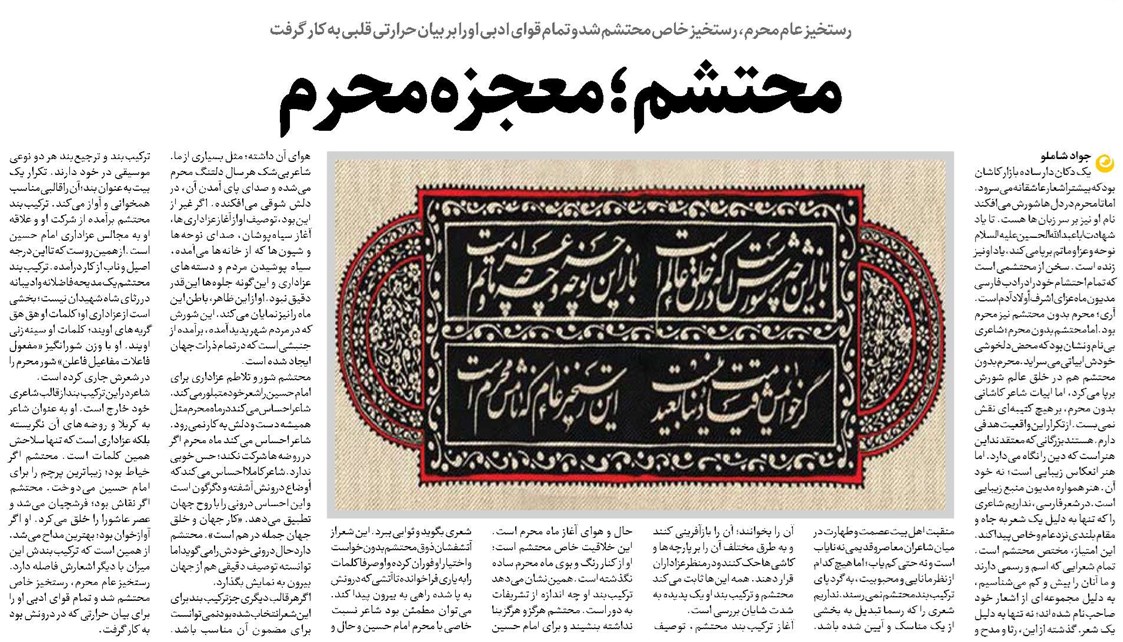 رستخیز عام محرم، رستخیز خاص محتشم شد و تمام قوای ادبی او را بر بیان حرارتی قلبی به کار گرفت
محتشم؛ معجزه محرم
جواد شاملو
یک دکان‌دار ساده بازار کاشان
بود که بیشتر اشعار عاشقانه می‌سرود.
اما تا محرم در دل‌ها شورش می‌افکند
نام او نیز بر سر زبان‌ها هست. تا یاد
شهادت باعبدالله الحسین علیه السلام
نوحه و عزا و ماتم برپا می‌کند، یاد او نیز
زنده است. سخن از محتشمی است
که تمام احتشام خود را در ادب فارسی
مدیون ماه عزای اشرف اولاد آدم است.
آری؛ محرم بدون محتشم نیز محرم
بود. اما محتشم بدون محرم؛ شاعری
بی‌نام و نشان بود که محض دلخوشی
خودش ابیاتی می‌سراید. محرم بدون
محتشم هم در خلق عالم شورش
برپا می‌کرد، اما ابیات شاعر کاشانی
بدون محرم، بر هیچ کتیبه‌ای نقش
نمی‌بست. از تکرار این واقعیت هدفی
دارم. هستند بزرگانی که معتقدند این
هنر است که دین را نگاه می‌دارد. اما
هنر انعکاس زیبایی است؛ نه خود
آن. هنر همواره مدیون منبع زیبایی
است. در شعر فارسی، نداریم شاعری
را که تنها به دلیل یک شعر به جاه و
مقام بلندی نزد عام و خاص پیدا کند.
این امتیاز، مختص محتشم است.
تمام شعرایی که اسم و رسمی دارند
و ما آنان را بیش و کم می‌شناسیم،
به دلیل مجموعه‌ای از اشعار خود
صاحب نام شده‌اند؛ نه تنها به دلیل
یک شعر. گذشته از این، رثا و مدح و
باز این چه شورش است که در خلق عالم است
باز این چه نوحه و چه عزا و چه ماتم است
گر خوانمش قیامت دنیا بعید نیست
این رستخیز عام که نامش محرم است
منقبت اهل بیت عصمت و طهارت در
میان شاعران معاصر و قدیمی نه نایاب
است و نه حتی کم‌یاب؛ اما هیچ کدام
از نظر مانایی و محبوبیت، به گرد پای
ترکیب‌بند محتشم نمی‌رسند. نداریم
شعری را که رسما تبدیل به بخشی
از یک مناسک و آیین شده باشد.
آن را بخوانند؛ آن را بازآفرینی کنند
و به طرق مختلف آن را بر پارچه‌ها و
کاشی‌ها حک کنند و در منظر عزاداران
قرار دهند. همه این‌ها ثابت می‌کند
محتشم و ترکیب‌بند او یک پدیده به
شدت شایان بررسی است.
آغاز ترکیب‌بند محتشم، توصیف
حال و هوای آغاز ماه محرم است.
این خلاقیت خاص محتشم است؛
او از کنار رنگ و بوی ماه محرم ساده
نگذشته است. همین نشان می‌دهد
ترکیب‌بند او چه اندازه از تشریفات
به دور است. محتشم هرگز و هرگز بنا
نداشته بنشیند و برای امام حسین
شعری بگوید و ثوابی ببرد. این شعر از
آتشفشان ذوق محتشم بدون خواست
و اختیار او فوران کرده و او صرفا کلمات
را به یاری فراخوانده تا آتشی که درونش
به پا شده راهی به بیرون پیدا کند.
می‌توان مطمئن بود شاعر نسبت
خاصی با محرم امام حسین و حال و
هوای آن داشته؛ مثل بسیاری از ما.
شاعر بی‌شک هر سال دلتنگ محرم
می‌شده و صدای پای آمدن آن، در
دلش شوقی می‌افکنده. اگر غیر از
این بود، توصیف او از آغاز عزاداری‌ها،
آغاز سیاه‌پوشان، صدای نوحه‌ها
و شیون‌ها که از خانه‌ها می‌آمده،
سیاه پوشیدن مردم و دسته‌های
عزاداری و این‌گونه جلوه‌ها این‌قدر
دقیق نبود. او از این ظاهر، باطن این
ماه را نیز نمایان می‌کند. این شورش
که در مردم شهر پدید آمده، برآمده از
جنبشی است که در تمام ذرات جهان
ایجاد شده است.
محتشم شور و تلاطم عزاداری برای
امام حسین را شعر خود متبلور می‌کند.
شاعر احساس می‌کند در ماه محرم مثل
همیشه دست و دلش به کار نمی‌رود.
شاعر احساس می کند ماه محرم اگر
در روضه‌ها شرکت نکند؛ حس خوبی
ندارد. شاعر کاملا احساس می‌کند که
اوضاع درونش آشفته و دگرگون است
و این احساس درونی را با روح جهان
تطبیق می‌دهد. «کار جهان و خلق
جهان جمله در هم است». محتشم
دارد حال درونی خودش را می‌گوید اما
توانسته توصیف دقیقی هم از جهان
بیرون به نمایش بگذارد.
اگر هر قالب دیگری جز ترکیب‌بند برای
این شعر انتخاب شده بود نمی‌توانست
برای مضمون آن مناسب باشد.
ترکیب‌بند و ترجیع‌بند هر دو نوعی
موسیقی در خود دارند. تکرار یک
بیت به عنوان بند؛ آن را قالبی مناسب
همخوانی و آواز می‌کند. ترکیب بند
محتشم برآمده از شرکت او و علاقه
او به مجالس عزاداری امام حسین
است. از همین روست که تا این درجه
اصیل و ناب از کار درآمده. ترکیب بند
محتشم یک مدیحه فاضلانه و ادیبانه
در رثای شاه شهیدان نیست؛ بخشی
است از عزاداری او؛ کلمات او هق هق
گریه‌های اویند؛ کلمات او سینه‌زنی
اویند. او با وزن شورانگیز «مفعول
فاعلات مفاعیل فاعلن» شور محرم را
در شعرش جاری کرده است.
شاعر در این ترکیب‌بند از قالب شاعری
خود خارج است. او به عنوان شاعر
به کربلا و روضه‌های آن نگریسته
بلکه عزاداری است که تنها سلاحش
همین کلمات است. محتشم اگر
خیاط بود؛ زیباترین پرچم را برای
امام حسین می‌دوخت. محتشم
اگر نقاش بود؛ فرشچیان می‌شد و
عصر عاشورا را خلق می‌کرد. او اگر
آوازخوان بود؛ بهترین مداح می‌شد.
از همین است که ترکیب‌بندش این
میزان با دیگر اشعارش فاصله دارد.
رستخیز عام محرم، رستخیز خاص
محتشم شد و تمام قوای ادبی او را
برای بیان حرارتی که در درونش بود
به کار گرفت.